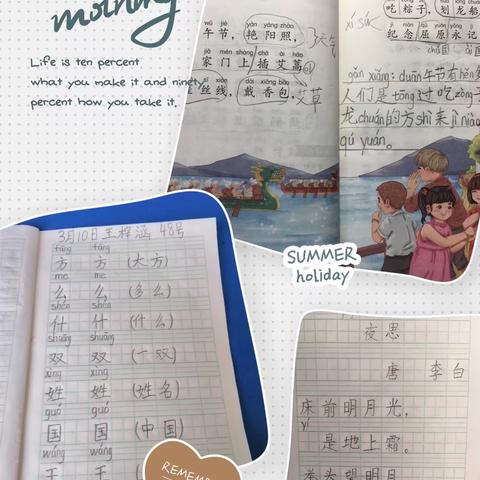 morning
Life is ten percent
what you make it and ninety
percent how you take it.
wǔ jié yàn yáng zhào
午节,艳阳照,
天气
jiā mén shàng chā ài hāo
家门上插艾蒿
丝线,戴香包,
dài xiāng bāo
艾草
吃粽子,划龙船
xí sú
纪念屈原永记
gǎn xiǎng: duān午节有hěn
人们是tōng过吃zòng子
龙chuán的方shì来jì niàn
qú yuán。
SUMMER
holiday
3月10日王梓涵 48号
fāng fāng
方 方 (大方)
me me
么 么 (多么)
shén shén
什 什 (什么)
shuāng shuāng
双 双 (一双)
xìng xìng
姓 姓 (姓名)
guó guó
国 国 (中国)
wáng wáng
王 王
REMEMBER
夜思
唐 李白
床前明月光,
yí
是地上霜。
举头望明月